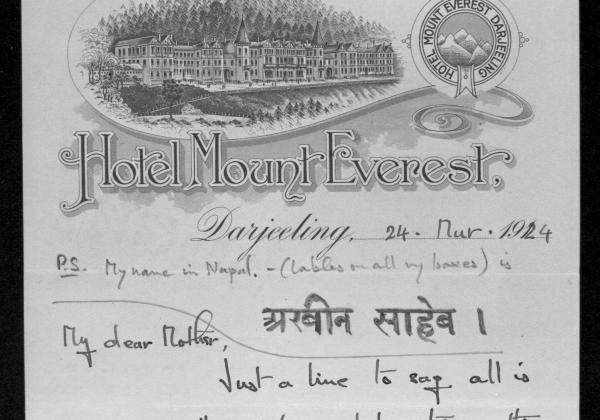 HOTEL MOUNT EVEREST DARJEELING
Hotel Mount Everest,
Darjeeling, 24. Mar. 1924
P.S. My name in Napal. - (lables on all my boxes) is
अरबीन साहेब ।
My dear Mother,
Just a line to say all is